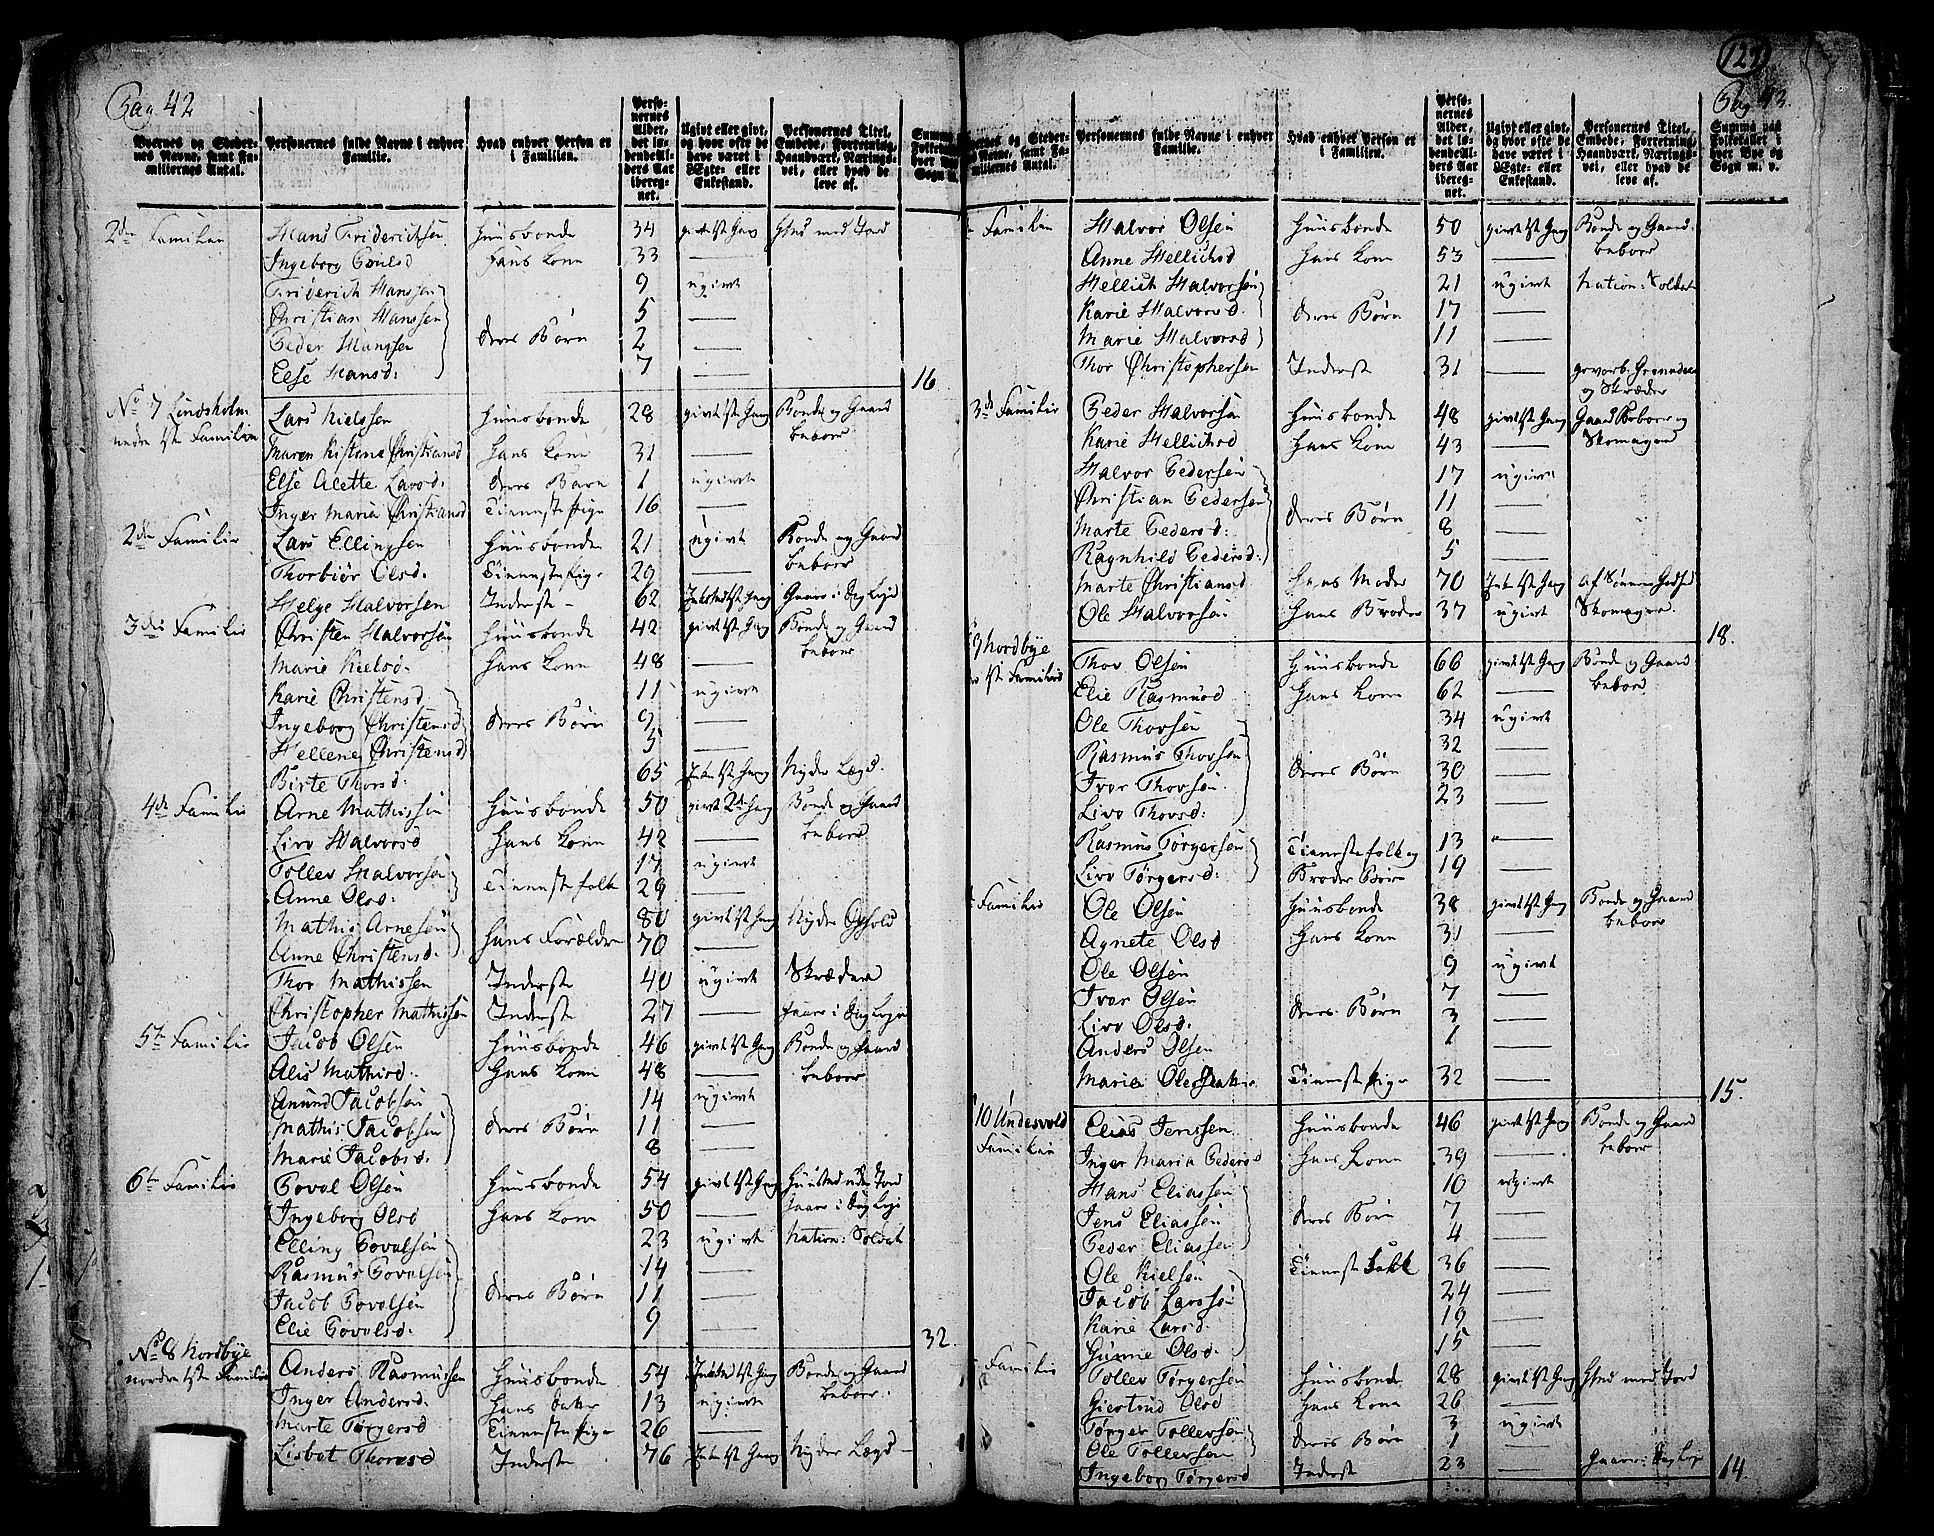 Pag. 42
Byernes og Stedernes Navne, samt Familiernes Antal. | Personernes fulde Navne i enhver Familie. | Hvad enhver Person er i Familien. | Personernes Alder, det løbende Alders Aar iberegnet. | Ugivt eller givt, og hvor ofte de have været i Ægte- eller Enkestand. | Personernes Titel, Embede, Forretning, Haandværk, Næringsvei, eller hvad de leve af.
2den Familie | Hans Friderichsen | Huusbonde | 34 | givt 1st Gang | Huusmed Jord
Ingeborg Poulsd | Hans Kone | 33 | —
Friderich Hanssen | 9 | ugivt
Christian Hanssen | 5 | —
Peder Hanssen | deres Børn | 2 | —
Else Hansd: | 7 | — | 16
No 7 Lindsholm | Lars Nielssen | Huusbonde | 28 | givt 1st Gang | Bonde og Gaard
nedre 1ste Familie | beboer
Maren Kistene Christiansd | Hans Kone | 31 | —
Else Alette Larsd. | deres Barn | 1 | ugivt
Inger Maria Christiansd | Tienneste Pige | 16 | —
2den Familie | Lars Ellingsen | Huusbonde | 21 | ugivt | Bonde og Gaard
beboer
Thorbiør Olsd. | Tienneste Pige | 29 | —
Helge Halvorsen | Inderste | 62 | Gaaer i Dag Leye
3die Familie | Christen Halvorsen | Huusbonde | 42 | givt 1st Gang | Bonde og Gaard
beboer
Marie Nielsd. | Hans Kone | 48 | —
Karie Christensd. | 11 | ugivt
Ingeborg Christensd | deres Børn | 9 | —
Hellene Christensd | 5 | —
Birte Thorsd: | 65 | Enke 1st Gang | Nyder Lægd.
4de Familie | Arne Mathissen | Huusbonde | 50 | givt 2d Gang | Bonde og Gaard
beboer
Live Halvorsd | Hans Kone | 42 | —
Tollev Halvorsen | 17 | ugivt
Anne Olsd: | Tienneste folk | 29 | —
Mathis Arnesen | 80 | givt 1st Gang | Nyder Ophold
Anne Christensd. | Hans Forældre | 70 | —
Thor Mathissen | Inderste | 40 | ugivt | Skræder
Christopher Mathissen | Inderste | 27 | — | Gaaer i Dag Leye
5te Familie | Jacob Olsen | Huusbonde | 46 | givt 1st Gang | Bonde og Gaard
Alis Mathisd. | Hans Kone | 48 | — | beboer
Amund Jacobsen | 14 | ugivt
Mathis Jacobsen | deres Børn | 11 | —
Marie Jacobsd. | 8 | —
6te Familie | Povel Olsen | Huusbonde | 54 | givt 1st Gang | Huusmd uden Jord
Ingeborg Olsd | Hans Kone | 50 | — | Gaaer i Dag Leye
Elling Povelsen | 23 | ugivt | Nation: Soldat
Rasmus Povelsen | 14 | —
Jacob Povelsen | deres Børn | 11 | —
Elie Povelsd. | 9 | — | 32.
No 8 Nordbye | Anders Rasmussen | Huusbonde | 54 | 1st Gang | Bonde og Gaard
nordre 1ste Familie | beboer.
Inger Andersd. | Hans Dater | 13 | ugivt
Marte Tørgersd | Tienneste Pige | 26 | —
Lisbet Thoresd | Inderste | 76 | Enke 1st Gang | Nyder Lægd
127
Pag. 43.
Byernes og Stedernes Navne, samt Familiernes Antal. | Personernes fulde Navne i enhver Familie. | Hvad enhver Person er i Familien. | Personernes Alder, det løbende Alders Aar iberegnet. | Ugivt eller givt, og hvor ofte de have været i Ægte- eller Enkestand. | Personernes Titel, Embede, Forretning, Haandværk, Næringsvei, eller hvad de leve af. | Summa paa Folketallet i hver Bye og Sogn m. v.
Familie | Halvor Olsen | Huusbonde | 50 | givt 1st Gang | Bonde og Gaard
beboer
Anne Hellichsd | Hans Kone | 53 | —
Hellich Halvorsen | 21 | ugivt | Nation: Soldat
Karie Halvorsd. | deres Børn | 17 | —
Marie Halvorsd | 11 | —
Thor Christophersen | Inderste | 31 | — | gevorb: Grenadeer
og Skræder
3die Familie | Peder Halvorsen | Huusbonde | 48 | givt 1st Gang | Gaard Beboer og
Karie Hellichsd | Hans Kone | 43 | — | Skomager
Halvor Pedersen | 17 | ugivt
Christian Pedersen | 11 | —
Marte Pedersd: | deres Børn | 8 | —
Ragnhild Pedersd: | 5 | —
Marte Christiansd | Hans Moder | 70 | Enke 1st Gang
Ole Halvorsen | Hans Broder | 37 | ugivt | Skomager. | 18.
9 Nordbye | Thor Olsen | Huusbonde | 66 | givt 1st Gang | Bonde og Gaard
1st Familie | beboer
Elie Rasmusd | Hans Kone | 62 | —
Ole Thorsen | 34 | ugivt
Rasmus Thorsen | 32 | —
Iver Thorsen | deres Børn | 30 | —
Live Thorsd: | 23 | —
Rasmus Tørgersen | Tienneste folk og | 13 | —
Live Tørgersd: | Broder Børn | 19 | —
Familie | Ole Olsen | Huusbonde | 38 | givt 1st Gang | Bonde og Gaard
beboer
Agnete Olsd | Hans Kone | 31 | —
Ole Olsen | 9 | ugivt
Iver Olsen | 7 | —
Live Olsd. | deres Børn | 3 | —
Anders Olsen | 1 | —
Maria Ole | Tienneste Pige | 32 | — | 15.
10 Undesvold | Elias Jenssen | Huusbonde | 46 | givt 1st Gang | Bonde og Gaard
Familie | beboer
Inger Maria Pedersd | Hans Kone | 39 | —
Hans Eliassen | 10 | ugivt
Jens Eliassen | deres Børn | 7 | —
Peder Eliassen | 4 | —
Ole Nielsen | Tienneste Folk | 36 | —
Jacob Larssen | 24 | —
Karie Larsd. | 19 | —
Gunnie Olsd. | 15 | —
Familie | Tollev Tørgersen | Huusbonde | 28 | givt 1st Gang | Hmd med Jord
Giertrud Olsd | Hans Kone | 26 | —
Tørger Tollevsen | 3 | ugivt
Ole Tollevsen | deres Børn | 1 | —
Ingeborg Tørgersd | Inderst | 23 | — | Gaaer i Dag Ley | 14.